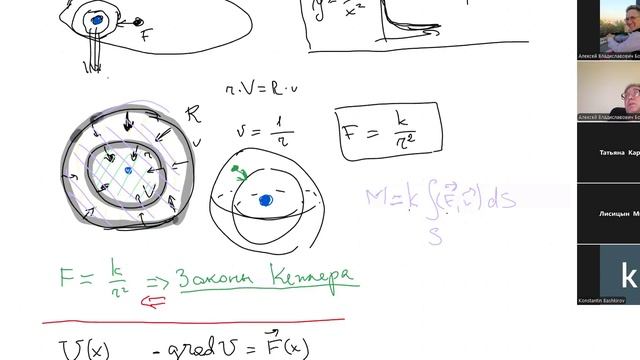 F
y = 1/x²
r·V = R·v
R
v
v = 1/r
F = k/r²
r
V
M = k ∫ (F⃗, v⃗) dS
S
F = k/r² => Законы Кеплера
<=
U(x) -grad U = F⃗(x)
Алексей Владиславович Бо
Алексей Владиславович Бо
Татьяна Кар
Лисицын М
k
Konstantin Bashkirov